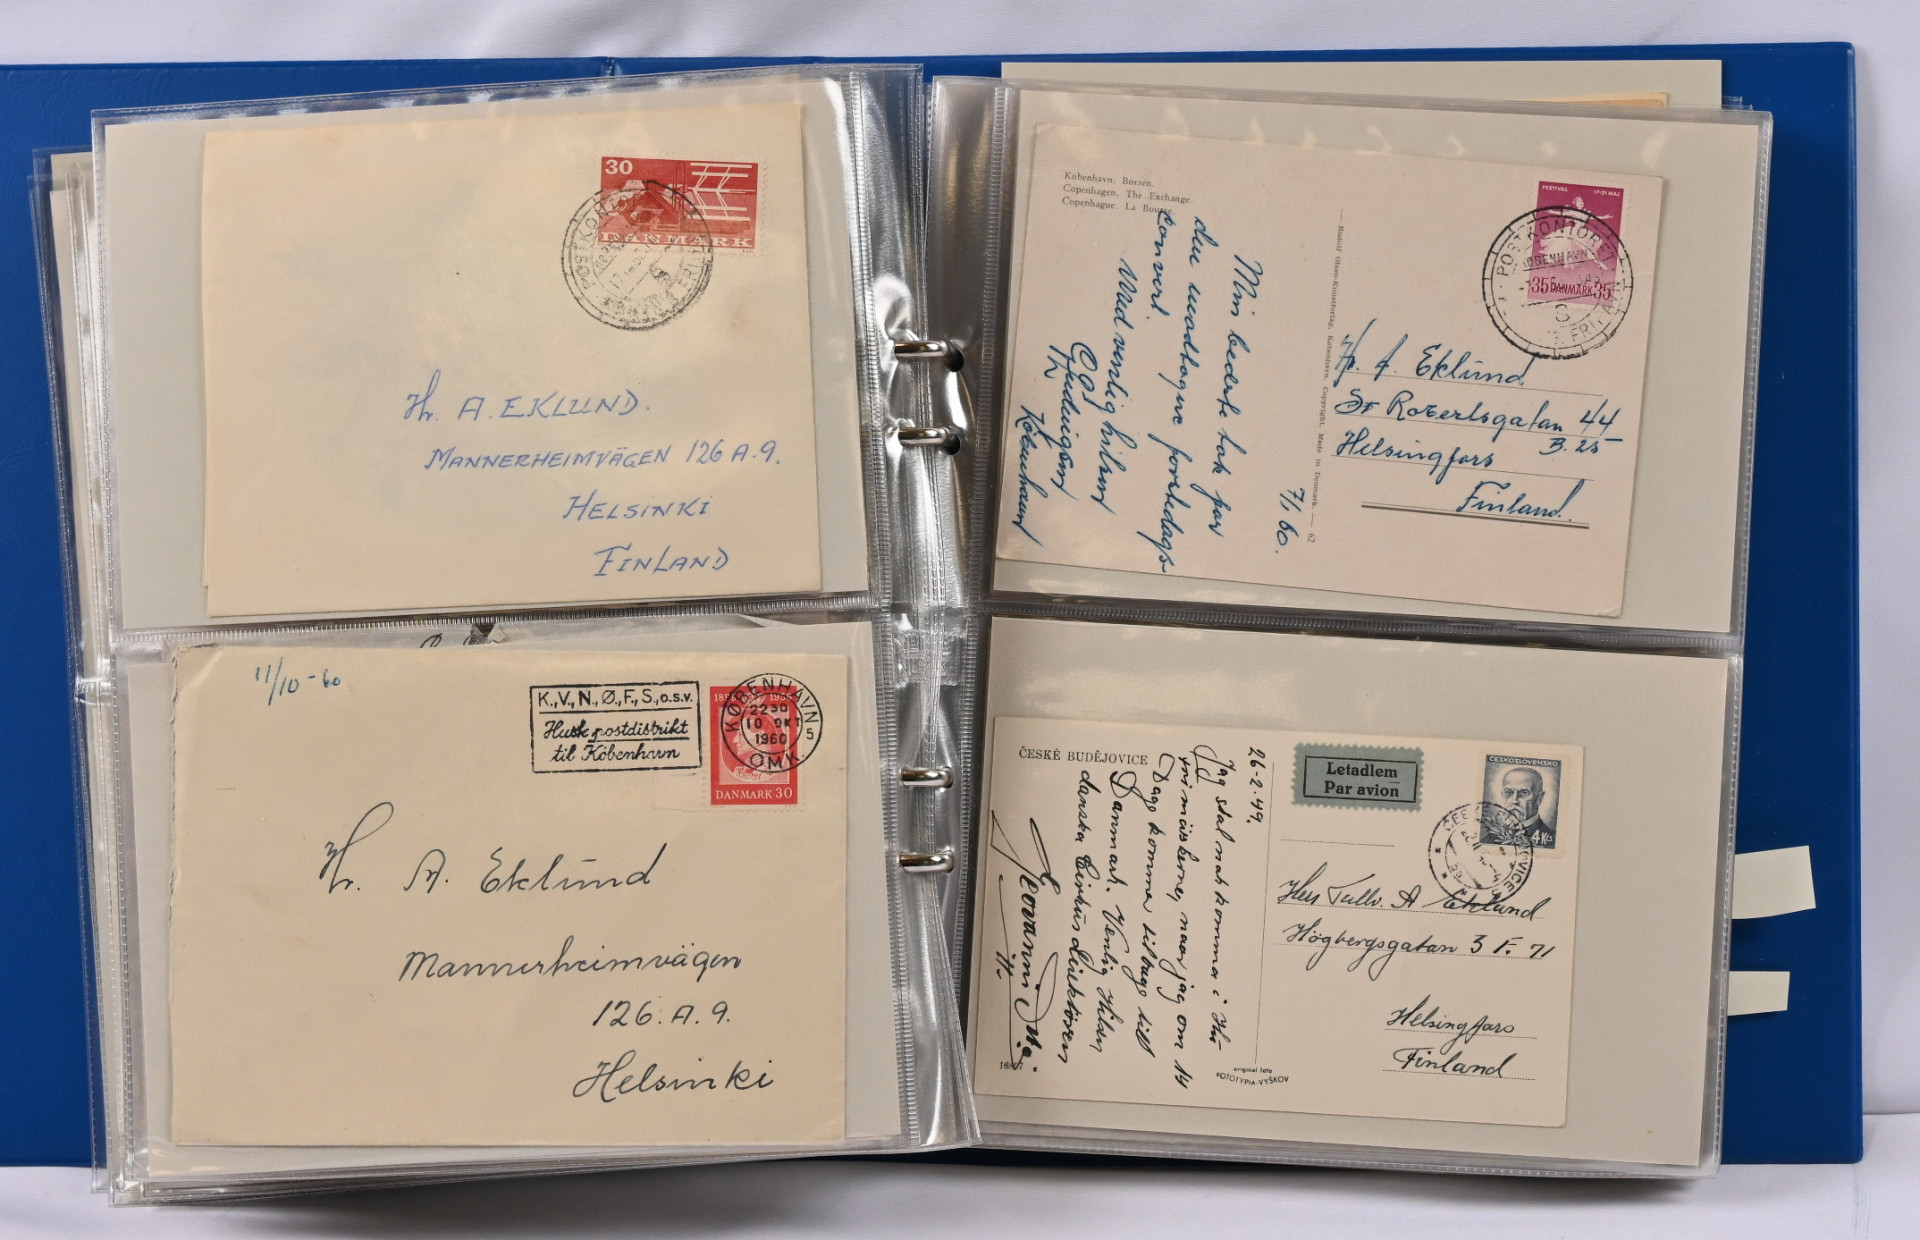 30
DANMARK
POSTKONTORET
Hr. A. EKLUND.
MANNERHEIMVÄGEN 126 A. 9.
HELSINKI
FINLAND
11/10-60
K.,V.,N.,Ø.,F.,S.,o.s.v.
Husk postdistrikt
til København
KØBENHAVN
2230
10 OKT
1960
5
OMK.
DANMARK 30
Hr. A. Eklund
Mannerheimvägen
126. A. 9.
Helsinki
København. Børsen.
Copenhagen. The Exchange.
Copenhague. La Bourse.
Min bedste tak for
den modtagne forstedags-
convert.
Med venlig hilsen
København
7/1 60.
— Rudolf Olsen-Kunstforlag, København. Copyright. Made in Denmark. — 62
FESTIVAL 17-31 MAJ
35 DANMARK 35
POSTKONTORET
KØBENHAVN
Hr. A. Eklund
St Robertsgatan 44
B. 25
Helsingfors
Finland.
ČESKÉ BUDĚJOVICE
26-2.49.
Jag skal nok komma i Hu
min misberne, naar jag om 14
Dage komma tilbage till
Danmark. Venlig Hilsen
danska Cirkus Direktören
original foto
FOTOTYPIA-VYŠKOV
Letadlem
Par avion
ČESKOSLOVENSKO
4 Kčs
Herr Tullv. A Eklund
Högbergsgatan 3 F. 71
Helsingfors
Finland